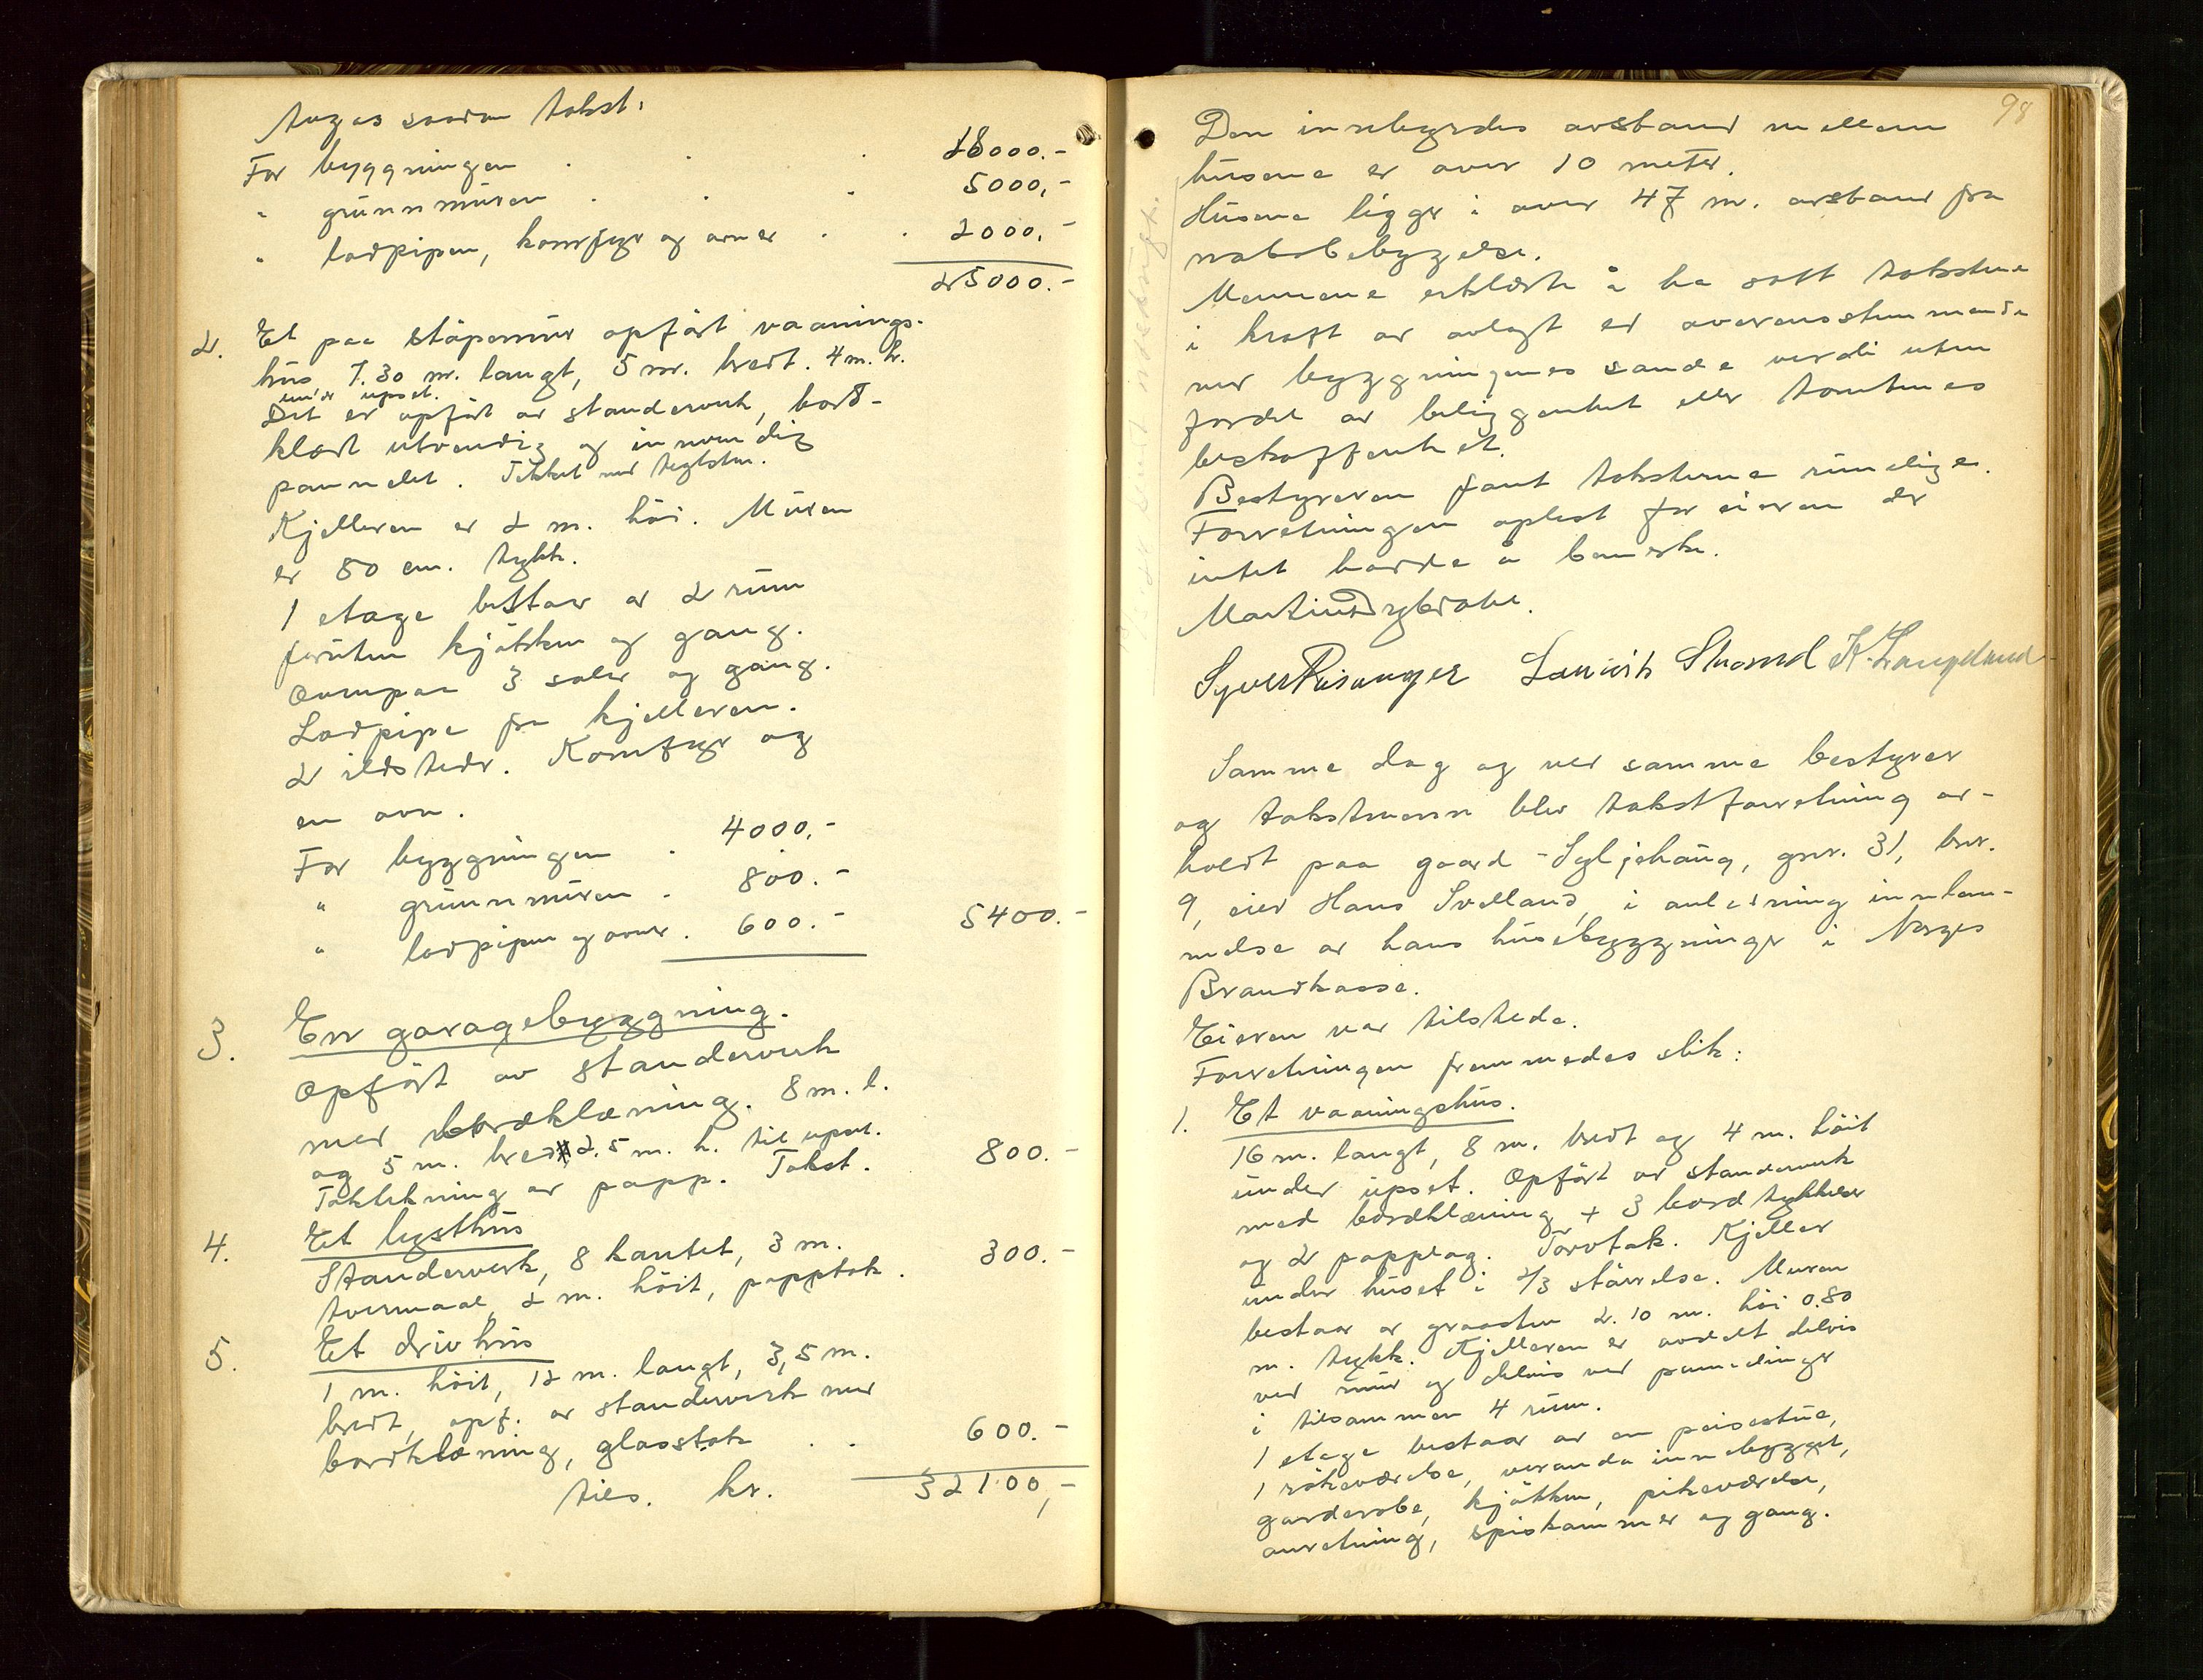 saadan takst:
For byggningen . . . 18000.-
" grunnmuren . . . 5000,-
" lodpipen, komfyr og ovner . . 2000,-
25000.-
2. Et paa stöpemur opfört vaanings-
hus, 7.30 m. langt, 5 m. bredt. 4 m. h.
under upset.
Det er opfört av standerverk, bord-
klædt utvendig og innvendig
pannelet. Tekket med teglsten.
Kjelleren er 2 m. höi. Muren
er 50 cm. tykk.
1 etage bestaar av 2 rum
foruten kjökken og gang.
Ovenpaa 3 saler og gang.
Lodpipe fra kjelleren.
2 ildsteder. Komfyr og
en ovn.
For byggningen . 4000.-
" grunnmuren . 800.-
" lodpipen og ovner . 600.- 5400.-
3. En garagebyggning.
Opfört av standerverk
med bordklæning. 8 m. l.
og 5 m. bred 2.5 m. h. til upset.
Taktekning av papp. Takst. 800.-
4. Et lysthus
Standerverk, 8 kantet, 3 m.
tvermaal, 2 m. höit, papptak . 300.-
5. Et drivhus
1 m. höit, 12 m. langt, 3,5 m.
bredt, opf. av standerverk med
bordklæning, glasstak . . 600.-
tils. kr. 32100,-
98
Den innebyrdes avstand mellem
husene er over 10 meter.
Husene ligger i over 47 m. avstand fra
nabobebyggelse.
Mennene erklærte å ha satt takstene
i kraft av avlagt ed overensstemmende
med byggningenes sande verdi uten
fordel av beliggenhet eller tomtenes
beskaffenhet.
Bestyreren fant takstene rimelige.
Forretningen oplest for eieren der
intet hadde å bemerke.
Martinus Dybdahl.
Syver Risanger Ludvik Strand K. Langeland
Samme dag og ved samme bestyrer
og takstmenn blev takstforretning av-
holdt paa gaard Syljehaug, gnr. 31, bnr.
9, eier Hans Svelland, i anledning innlem-
melse av hans husebyggninger i Norges
Brandkasse.
Eieren var tilstede.
Forretningen fremmedes slik:
1. Et vaaningshus.
16 m. langt, 8 m. bredt og 4 m. höit
under upset. Opfört av standerverk
med bordklæning + 3 bord tykkelser
og 2 papplag. Torvtak. Kjeller
under huset i 2/3 störrelse. Muren
bestaar av graasten 2.10 m. höi 0.80
m. tykk. Kjelleren er avdelt delvis
ved mur og delvis ved pannelinger
i tilsammen 4 rum.
1 etage bestaar av en peisestue,
1 rökeværelse, veranda innebygget,
garderobe, kjökken, pikeværelse,
anretning, spiskammer og gang.